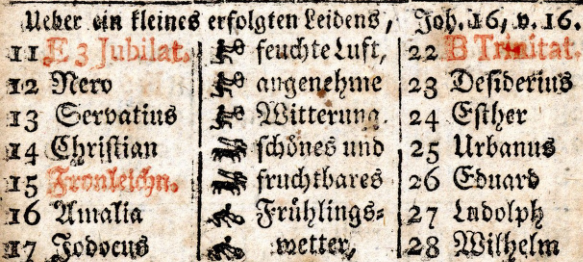 Ueber ein kleines erfolgten Leidens, Joh. 16, v. 16.
11 E 3 Jubilat. feuchte Luft, 22 B Trinitat.
12 Nero angenehme 23 Desiderius
13 Servatius Witterung. 24 Esther
14 Christian schönes und 25 Urbanus
15 Fronleichn. fruchtbares 26 Eduard
16 Amalia Frühlings- 27 Ludolph
17 Jodocus wetter, 28 Wilhelm